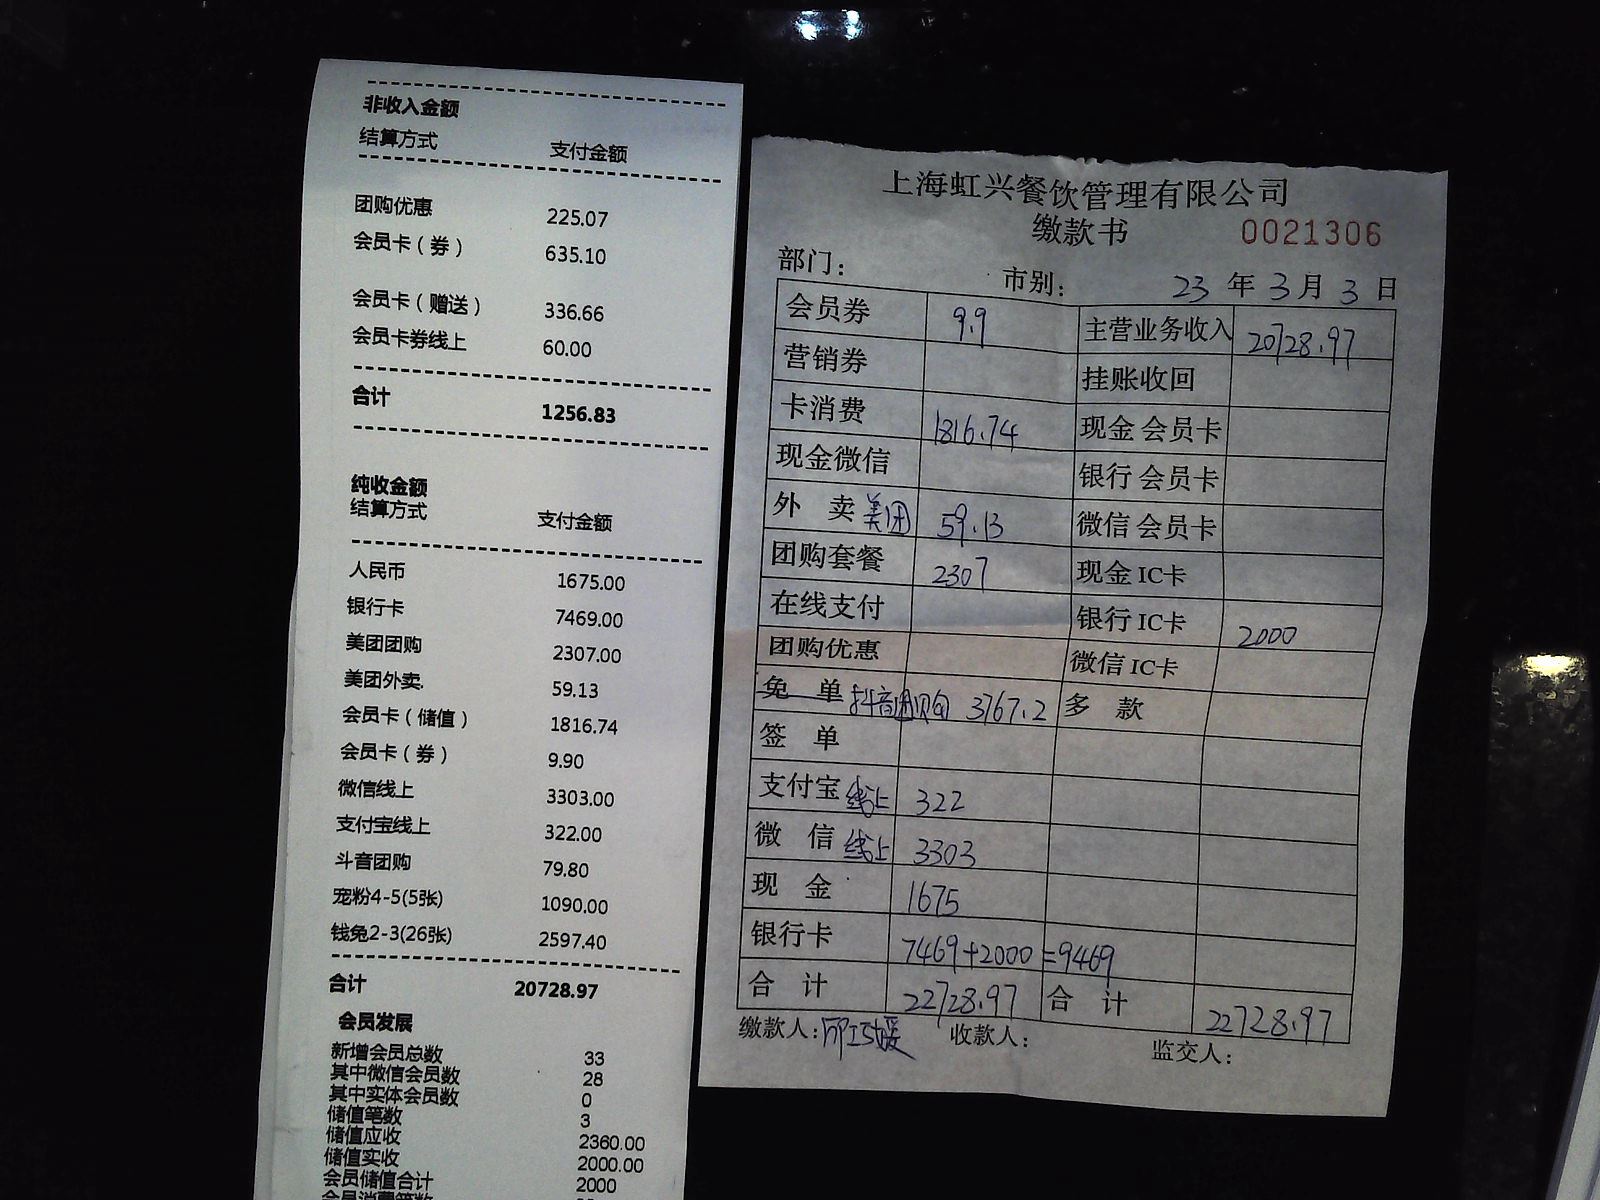 非收入金额
结算方式 支付金额
团购优惠 225.07
会员卡（券） 635.10
会员卡（赠送） 336.66
会员卡券线上 60.00
合计 1256.83
纯收金额
结算方式 支付金额
人民币 1675.00
银行卡 7469.00
美团团购 2307.00
美团外卖 59.13
会员卡（储值） 1816.74
会员卡（券） 9.90
微信线上 3303.00
支付宝线上 322.00
斗音团购 79.80
宠粉4-5(5张) 1090.00
钱兔2-3(26张) 2597.40
合计 20728.97
会员发展
新增会员总数 33
其中微信会员数 28
其中实体会员数 0
储值笔数 3
储值应收 2360.00
储值实收 2000.00
会员储值合计 2000
会员消费笔数
上海虹兴餐饮管理有限公司
缴款书 0021306
部门： 市别： 23 年 3 月 3 日
会员券 9.9 主营业务收入 20728.97
营销券 挂账收回
卡消费 1816.74 现金 会员卡
现金微信 银行 会员卡
外 卖 美团 59.13 微信 会员卡
团购套餐 2307 现金 IC卡
在线支付 银行 IC卡 2000
团购优惠 微信 IC卡
免 单 抖音团购 3767.2 多 款
签 单
支付宝 线上 322
微 信 线上 3303
现 金 1675
银行卡 7469+2000=9469
合 计 22728.97 合 计 22728.97
缴款人： 收款人： 监交人：